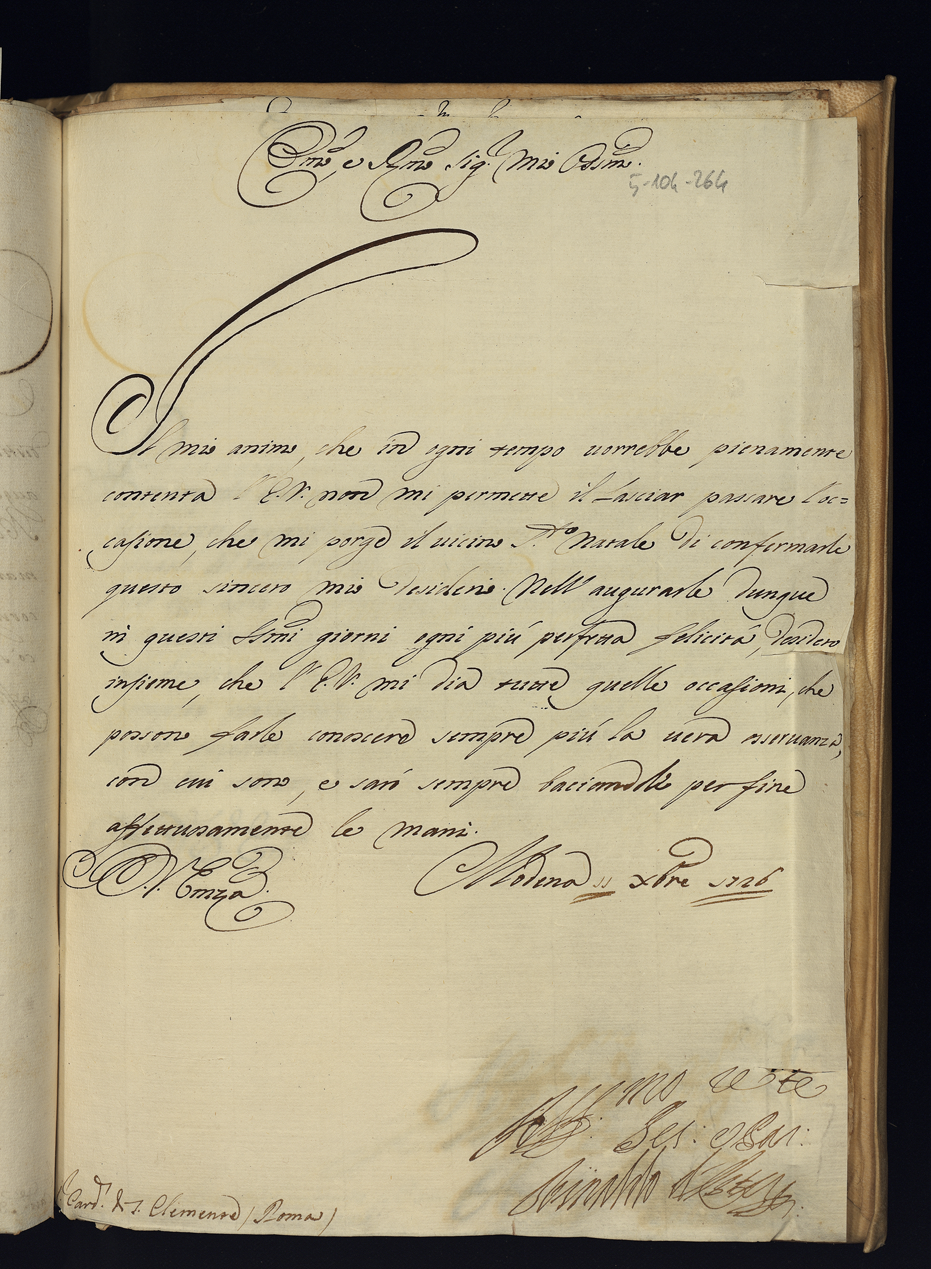 Emo, e Rmo Sig. Mio Ossmo.
5-104-264
Il mio animo, che in ogni tempo vorrebbe pienamente
contenta l'E.V. non mi permette il lasciar passare l'oc=
casione, che mi porge il vicino S.to Natale di confermarle
questo sincero mio desiderio. Nell'augurarle dunque
in questi Ssmi giorni ogni più perfetta felicità, desidero
insieme, che l'E.V. mi dia tutte quelle occasioni, che
posson farle conoscere sempre più la vera osservanza,
con cui sono, e sarò sempre baciandole per fine
affettuosamente le mani.
D. V. Emza.
Modena 11 xbre 1726
Aff.mo
Ser:
Rinaldo d'Este
Card. di S. Clemente (Roma)